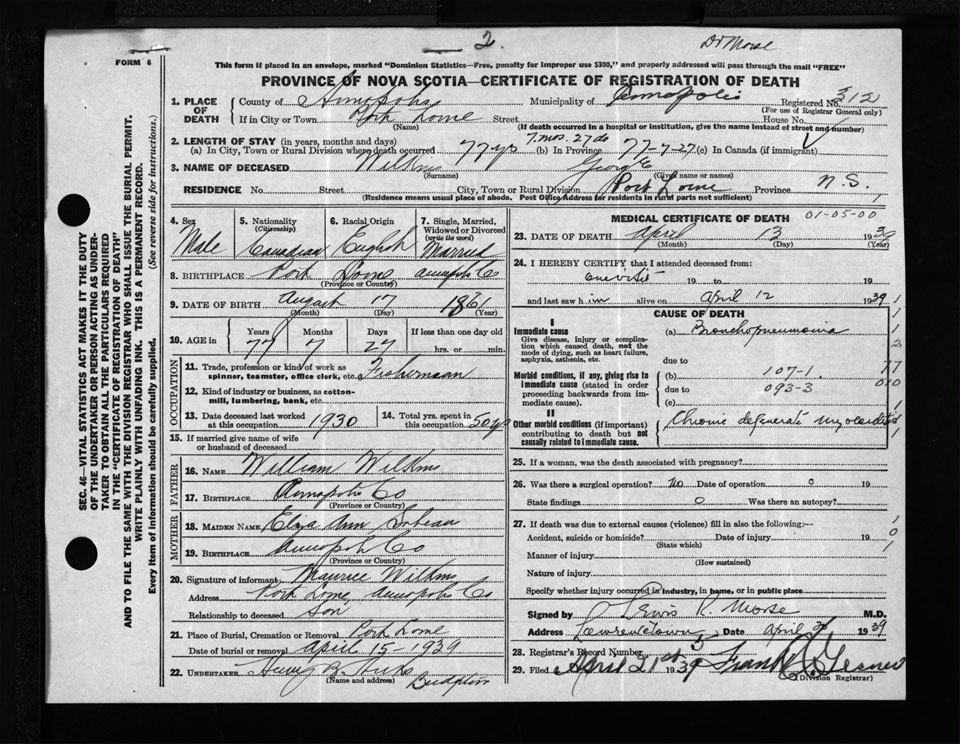 2.
Dr Morse
FORM 6
This form if placed in an envelope, marked "Dominion Statistics—Free, penalty for improper use $300," and properly addressed will pass through the mail "FREE"
PROVINCE OF NOVA SCOTIA—CERTIFICATE OF REGISTRATION OF DEATH
1. PLACE OF DEATH
County of Annapolis Municipality of Annapolis Registered No. 312
(For use of Registrar General only)
If in City or Town Port Lorne Street House No.
(Name) (If death occurred in a hospital or institution, give the name instead of street and number)
2. LENGTH OF STAY (in years, months and days) 7 mos. 27 do
(a) In City, Town or Rural Division where death occurred 77 yrs (b) In Province 77-7-27 (c) In Canada (if immigrant)
3. NAME OF DECEASED Wilkins George
(Surname) (Given name or names)
RESIDENCE No. Street City, Town or Rural Division Port Lorne Province N.S.
(Residence means usual place of abode. Post Office Address for residents in rural parts not sufficient)
4. Sex Male
5. Nationality (Citizenship) Canadian
6. Racial Origin English
7. Single, Married, Widowed or Divorced (write the word) Married
8. BIRTHPLACE Port Lorne Annapolis Co
(Province or Country)
9. DATE OF BIRTH August 17 1861
(Month) (Day) (Year)
10. AGE in Years 77 Months 7 Days 27 If less than one day old
hrs. or min.
OCCUPATION
11. Trade, profession or kind of work as spinner, teamster, office clerk, etc. Fisherman
12. Kind of industry or business, as cotton-mill, lumbering, bank, etc.
13. Date deceased last worked at this occupation 1930
14. Total yrs. spent in this occupation 50 yrs
15. If married give name of wife or husband of deceased
FATHER
16. NAME William Wilkins
17. BIRTHPLACE Annapolis Co
(Province or Country)
MOTHER
18. MAIDEN NAME Eliza Ann
19. BIRTHPLACE Annapolis Co
(Province or Country)
20. Signature of informant Maurice Wilkins
Address Port Lorne, Annapolis Co
Relationship to deceased Son
21. Place of Burial, Cremation or Removal Port Lorne
Date of burial or removal April 15-1939
22. UNDERTAKER
(Name and address)
MEDICAL CERTIFICATE OF DEATH 01-05-00
23. DATE OF DEATH April 13 1939
(Month) (Day) (Year)
24. I HEREBY CERTIFY that I attended deceased from:
19 to 19
and last saw h im alive on April 12 1939
CAUSE OF DEATH
I
Immediate cause
Give disease, injury or complication which caused death, not the mode of dying, such as heart failure, asphyxia, asthenia, etc.
(a) Bronchopneumonia
due to
Morbid conditions, if any, giving rise to immediate cause (stated in order proceeding backwards from immediate cause).
(b) 107-1
due to 093-3
(c)
II
Other morbid conditions (if important) contributing to death but not causally related to immediate cause.
Chronic degenerate myocarditis
25. If a woman, was the death associated with pregnancy?
26. Was there a surgical operation? No Date of operation 0 19
State findings 0 Was there an autopsy?
27. If death was due to external causes (violence) fill in also the following:—
Accident, suicide or homicide? Date of injury 19
(State which)
Manner of injury
(How sustained)
Nature of injury
Specify whether injury occurred in industry, in home, or in public place
Signed by Lewis R. Morse M.D.
Address Lawrencetown Date April 1939
28. Registrar's Record Number 5
29. Filed April 21st 1939 Frank
(Division Registrar)
SEC. 46—VITAL STATISTICS ACT MAKES IT THE DUTY
OF THE UNDERTAKER OR PERSON ACTING AS UNDER-
TAKER TO OBTAIN ALL THE PARTICULARS REQUIRED
IN THE "CERTIFICATE OF REGISTRATION OF DEATH"
AND TO FILE THE SAME WITH THE DIVISION REGISTRAR WHO SHALL ISSUE THE BURIAL PERMIT.
WRITE PLAINLY WITH UNFADING INK. THIS IS A PERMANENT RECORD.
Every item of information should be carefully supplied. (See reverse side for instructions.)